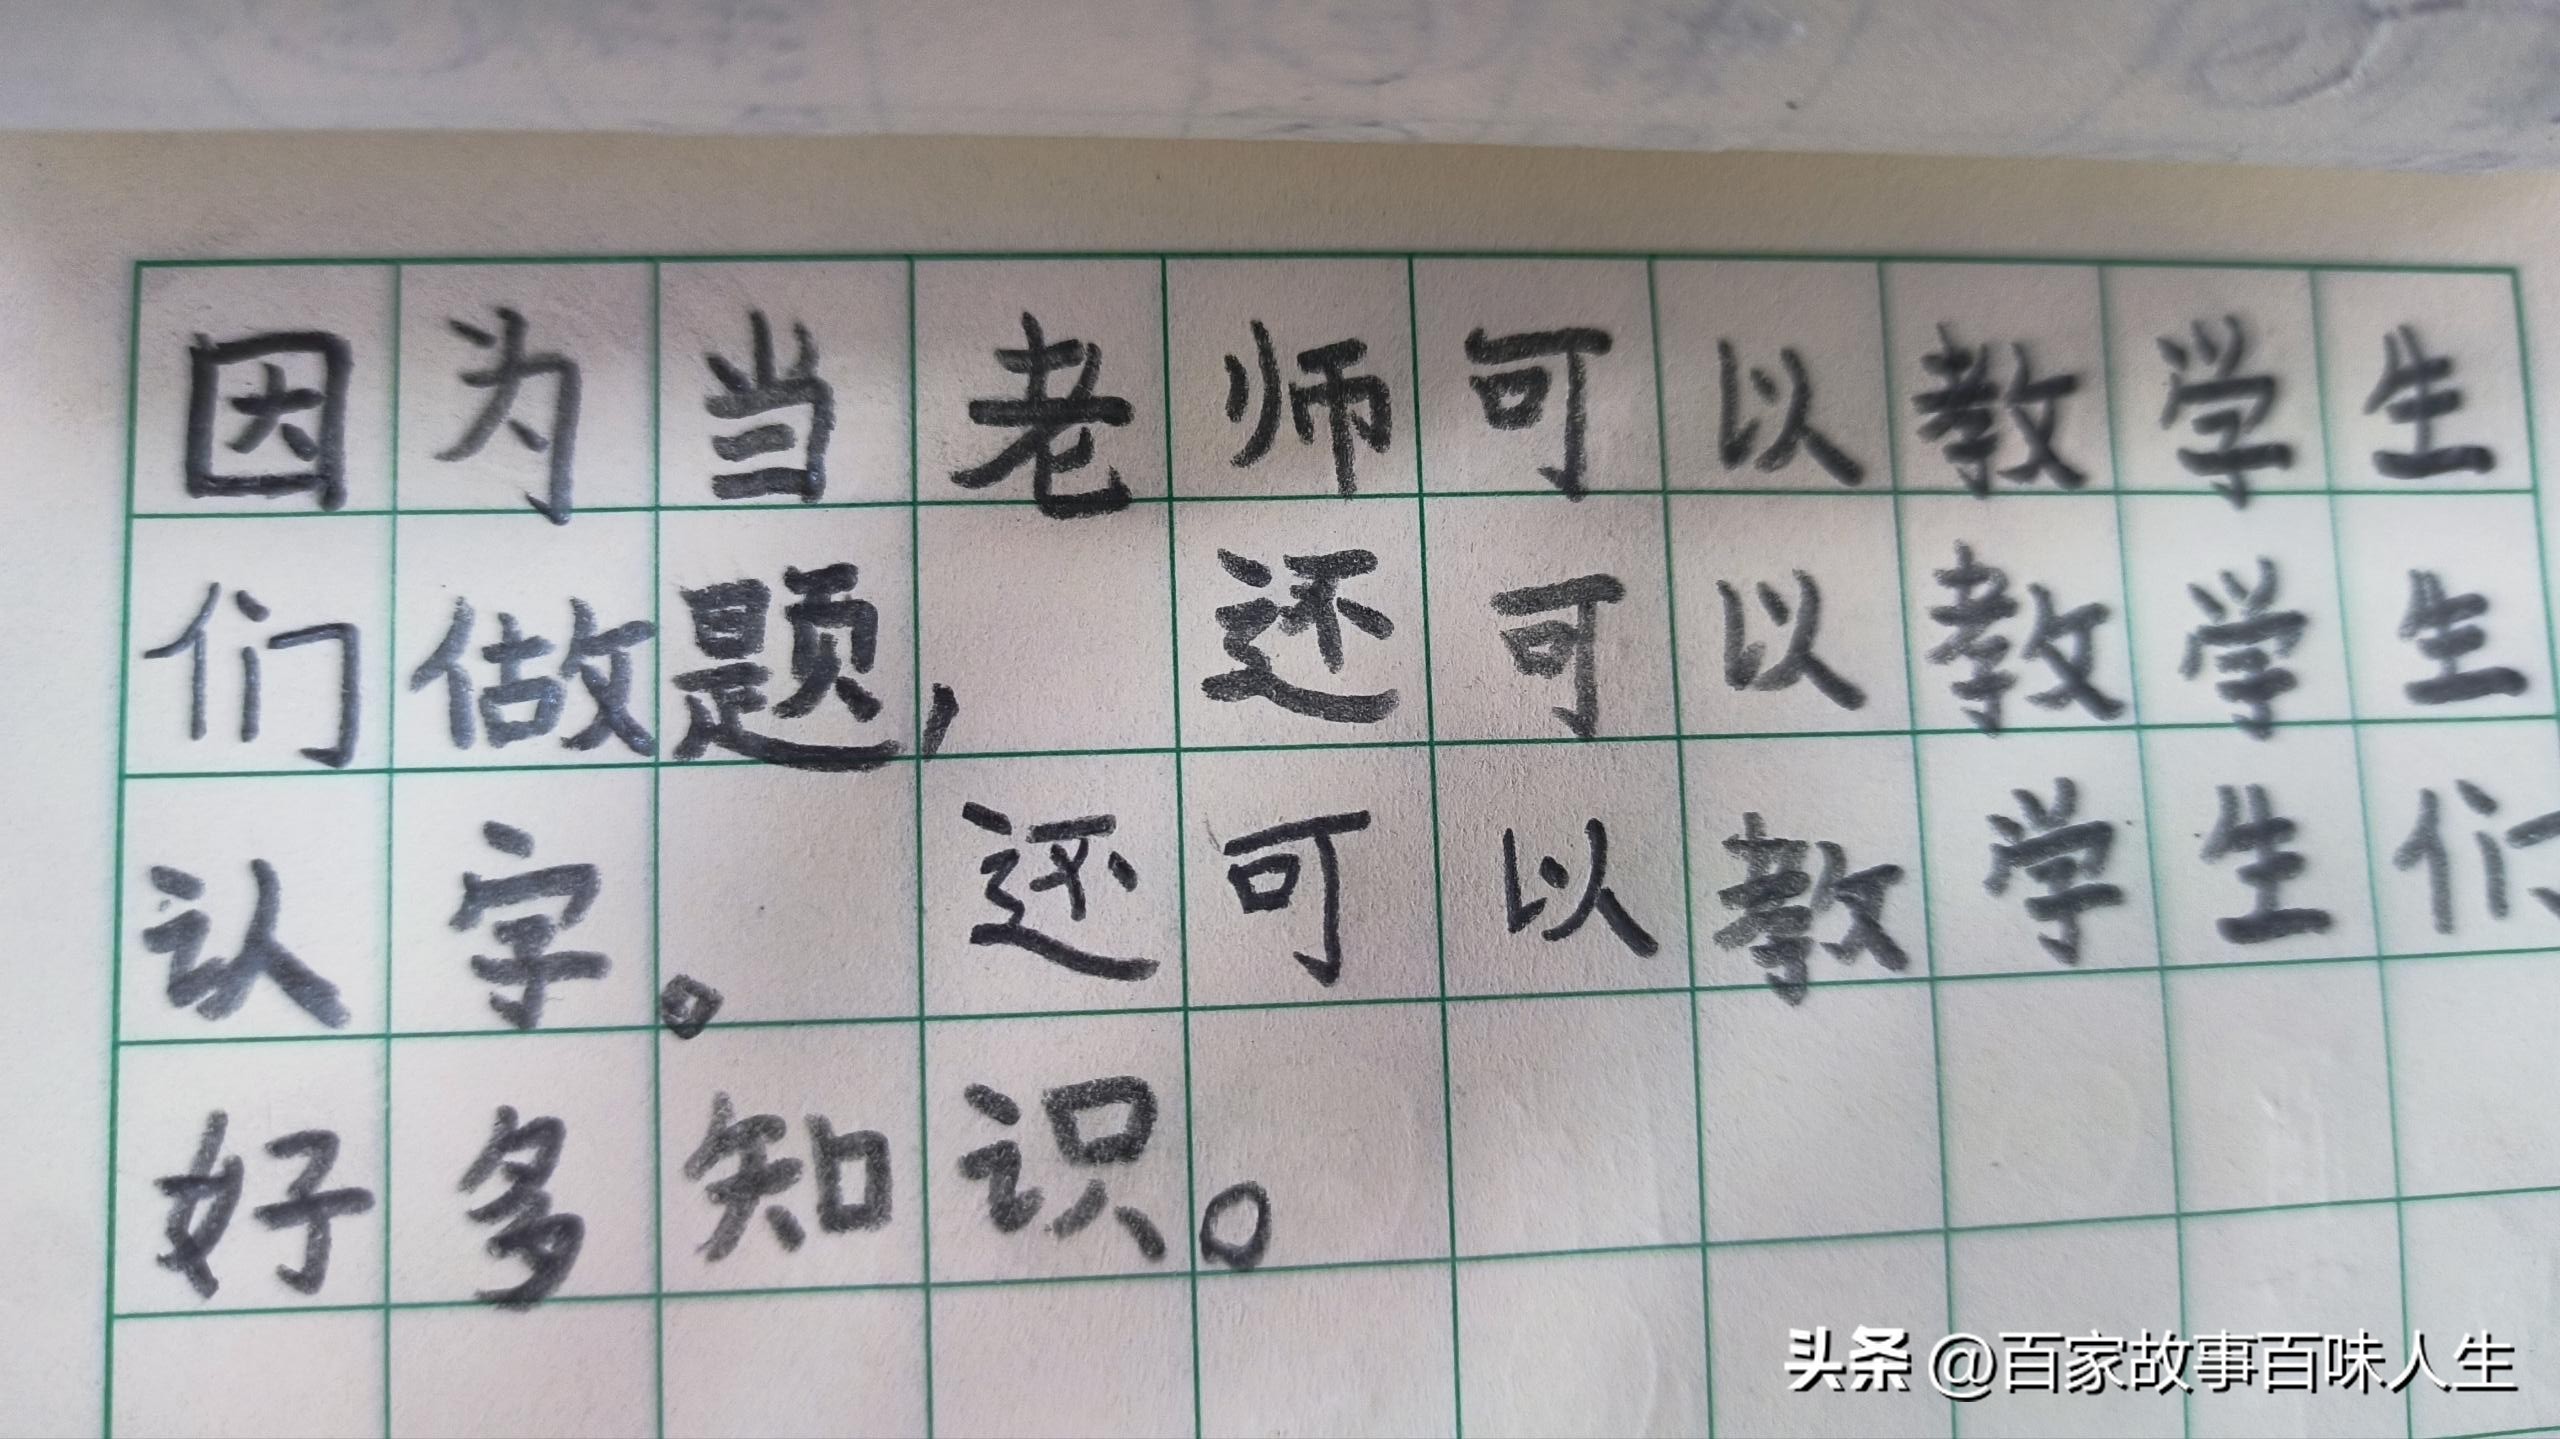 因为当老师可以教学生
们做题，还可以教学生
认字。还可以教学生们
好多知识。
头条 @百家故事百味人生